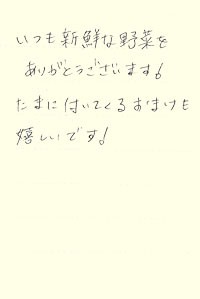 いつも新鮮な野菜を
ありがとうございます!
たまに付いてくるおまけも
嬉しいです!